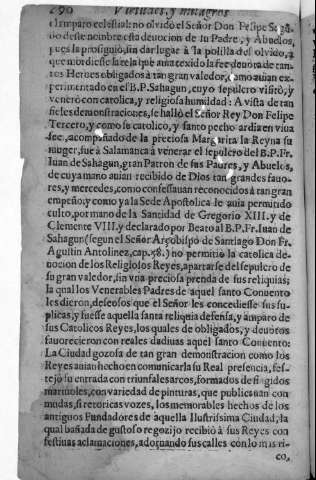 290 Virtudes, y milagros
el amparo celestial: no olvidó el Señor Don Felipe Segũ-
do deste nombre esta deuocion de su Padre, y Abuelos,
pues la prosiguiò, sin dar lugar à la polilla del olvido, a
que mordiesse la tela que auia texido la fee deuota de tan-
tos Heroes obligados à tan gran valedor, como auian ex-
perimentado en el B.P. Sahagun, cuyo sepulcro visitò, y
venerò con catolica, y religiosa humildad: A vista de tan
fieles demonstraciones, se hallò el Señor Rey Don Felipe
Tercero, y como su catolico, y santo pecho ardia en viua
fee, acompañado de la preciosa Margarita la Reyna su
muger, fuè à Salamanca à venerar el sepulcro del B.P. Fr.
Iuan de Sahagun, gran Patron de sus Padres, y Abuelos,
de cuya mano auian recibido de Dios tan grandes fauo-
res, y mercedes, como confessauan reconocidos à tan gran
empeño; y como ya la Sede Apostolica le auia permitido
culto, por mano de la Santidad de Gregorio XIII. y de
Clemente VIII. y declarado por Beato al B.P. Fr. Iuan de
Sahagun (segun el Señor Arçobispo de Santiago Don Fr.
Agustin Antolinez, cap. 58.) no permitiò la catolica de-
uocion de los Religiosos Reyes, apartarse del sepulcro de
su gran valedor, sin vna preciosa prenda de sus reliquias;
la qual los Venerables Padres de aquel santo Conuento
les dieron, deseosos que el Señor les concediesse sus su-
plicas, y fuesse aquella santa reliquia defensa, y amparo de
sus Catolicos Reyes, los quales de obligados, y deuotos
fauorecieron con reales dadiuas aquel santo Conuento:
La Ciudad gozosa de tan gran demonstracion como los
Reyes auian hecho en comunicarla su Real presencia, fes-
tejò su entrada con triunfales arcos, formados de fingidos
marmoles, con variedad de pinturas, que publicauan con
mudas, si retoricas vozes, los memorables hechos de los
antiguos Fundadores de aquella Ilustrissima Ciudad; la
qual bañada de gustoso regozijo recibiò à sus Reyes con
festiuas aclamaciones, adornando sus calles con lo mas ri-
co,